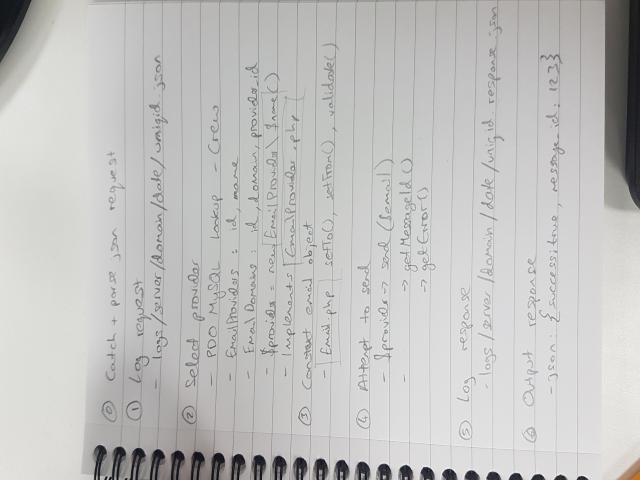 ⓪ Catch + parse json request
① Log request
- logs/server/domain/date/uniqid.json
② Select provider
- PDO MySQL Lookup - Crew
- EmailProviders: id, name
- EmailDomains: id, domain, provider_id
- $provider = new EmailProvider\$name()
- Implements EmailProvider.php
③ Construct email object
- Email.php setTo(), setFrom(), validate()
④ Attempt to send
- $provider → send($email)
- → getMessageId()
→ getError()
⑤ Log response
- logs/server/domain/date/uniqid.response.json
⑥ Output response
- json: {success: true, message_id: 123}